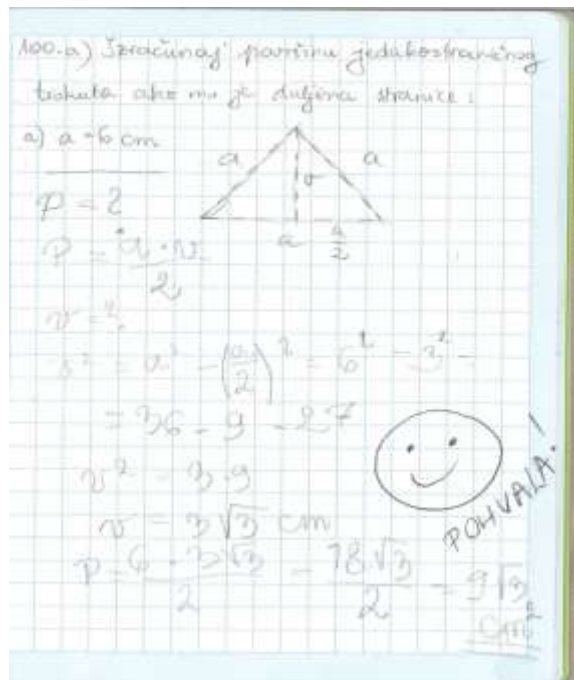 100.a) Izračunaj površinu jednakostraničnog
trokuta ako mu je duljina stranice:
a) a = 6 cm
a
v
a
a
a/2
P = ?
P = a · v / 2
v = ?
v² = a² - (a/2)² = 6² - 3² =
= 36 - 9 = 27
v² = 3·9
v = 3√3 cm
P = 6 · 3√3 / 2 = 18√3 / 2 = 9√3
cm²
POHVALA!